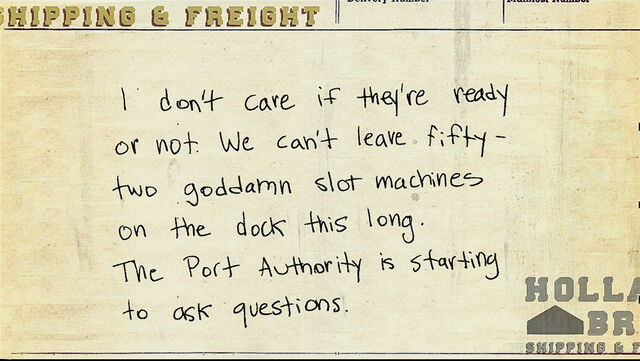 SHIPPING & FREIGHT
Delivery Number
Manifest Number
I don't care if they're ready
or not. We can't leave fifty-
two goddamn slot machines
on the dock this long.
The Port Authority is starting
to ask questions.
HOLLA
BR
SHIPPING & F